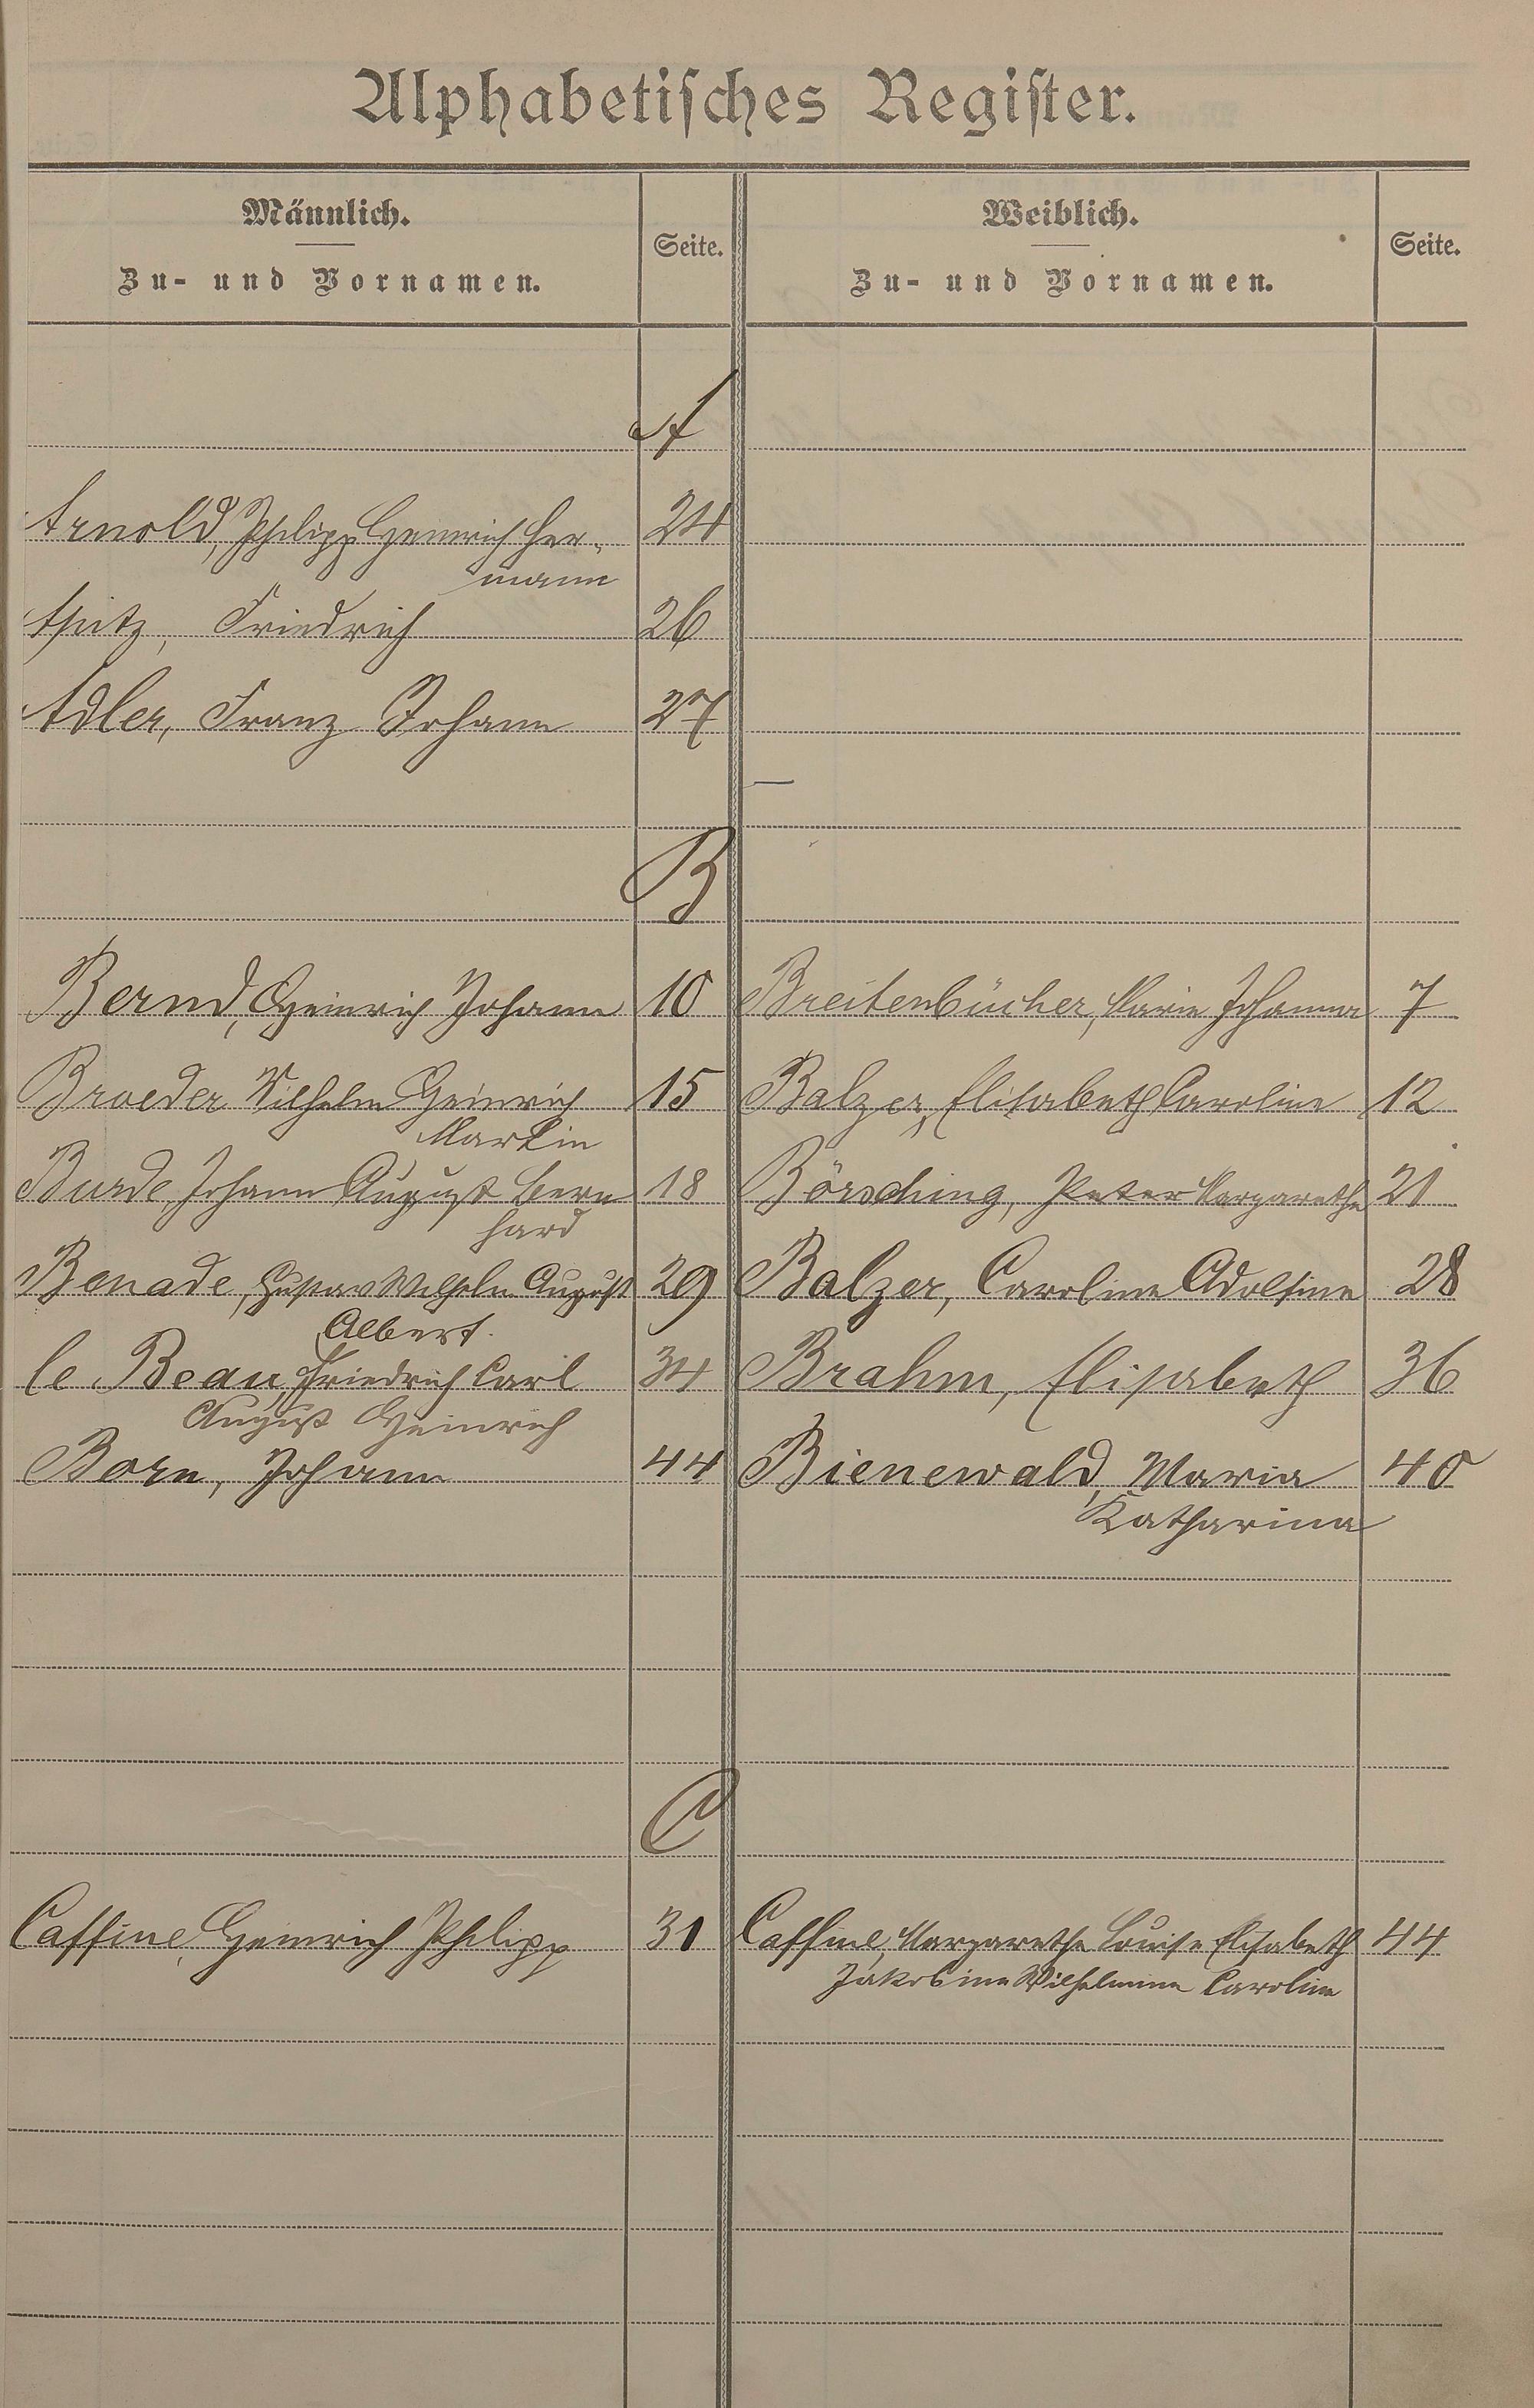 Alphabetisches Register.
Männlich.
Zu- und Vornamen.
Seite.
Weiblich.
Zu- und Vornamen.
Seite.
A
Arnold, Philipp Heinrich Her- 24
mann
Friedrich 26
Adler, Franz Johann 27
B
Bernd, Heinrich Johann 10 Breitenbücher, Marie Johanna 7
Broeder Wilhelm Heinrich 15 Balzer, Elisabeth Caroline 12
Martin
Burde, Johann August Bern 18 Börsching, Peter Margarethe 21
hard
Benade, Gustav Wilhelm August 29 Balzer, Caroline Adolfine 28
Albert.
le Beau, Friedrich Carl 34 Brahm, Elisabeth 36
August Heinrich
Born, Johann 44 Bienewald, Maria 40
Katharina
C
Caffine, Heinrich Philipp 31 Caffine, Margarethe Louise Elisabeth 44
Jakobine Wilhelmine Caroline